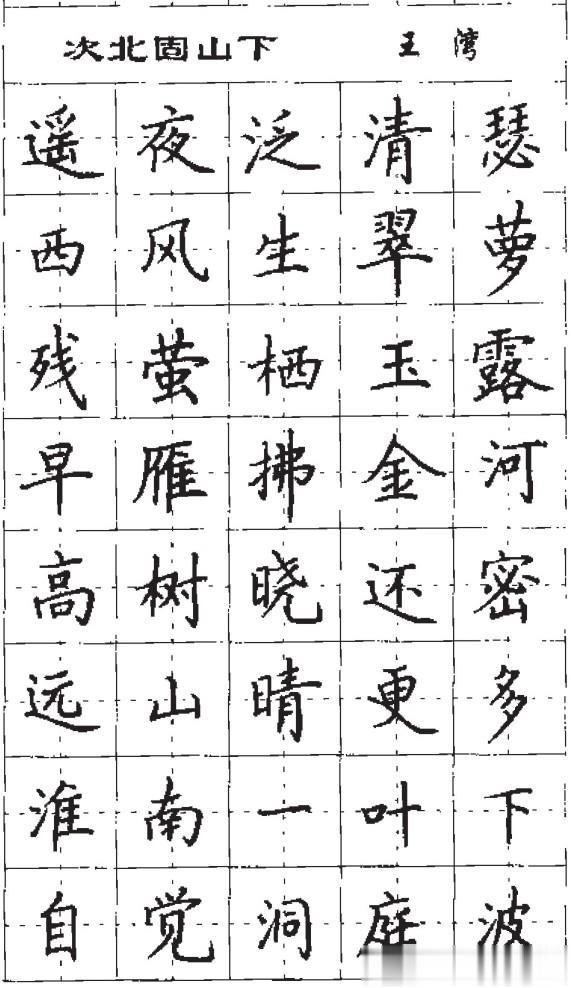 次北固山下 王湾
遥夜泛清瑟
西风生翠萝
残萤栖玉露
早雁拂金河
高树晓还密
远山晴更多
淮南一叶下
自觉洞庭波